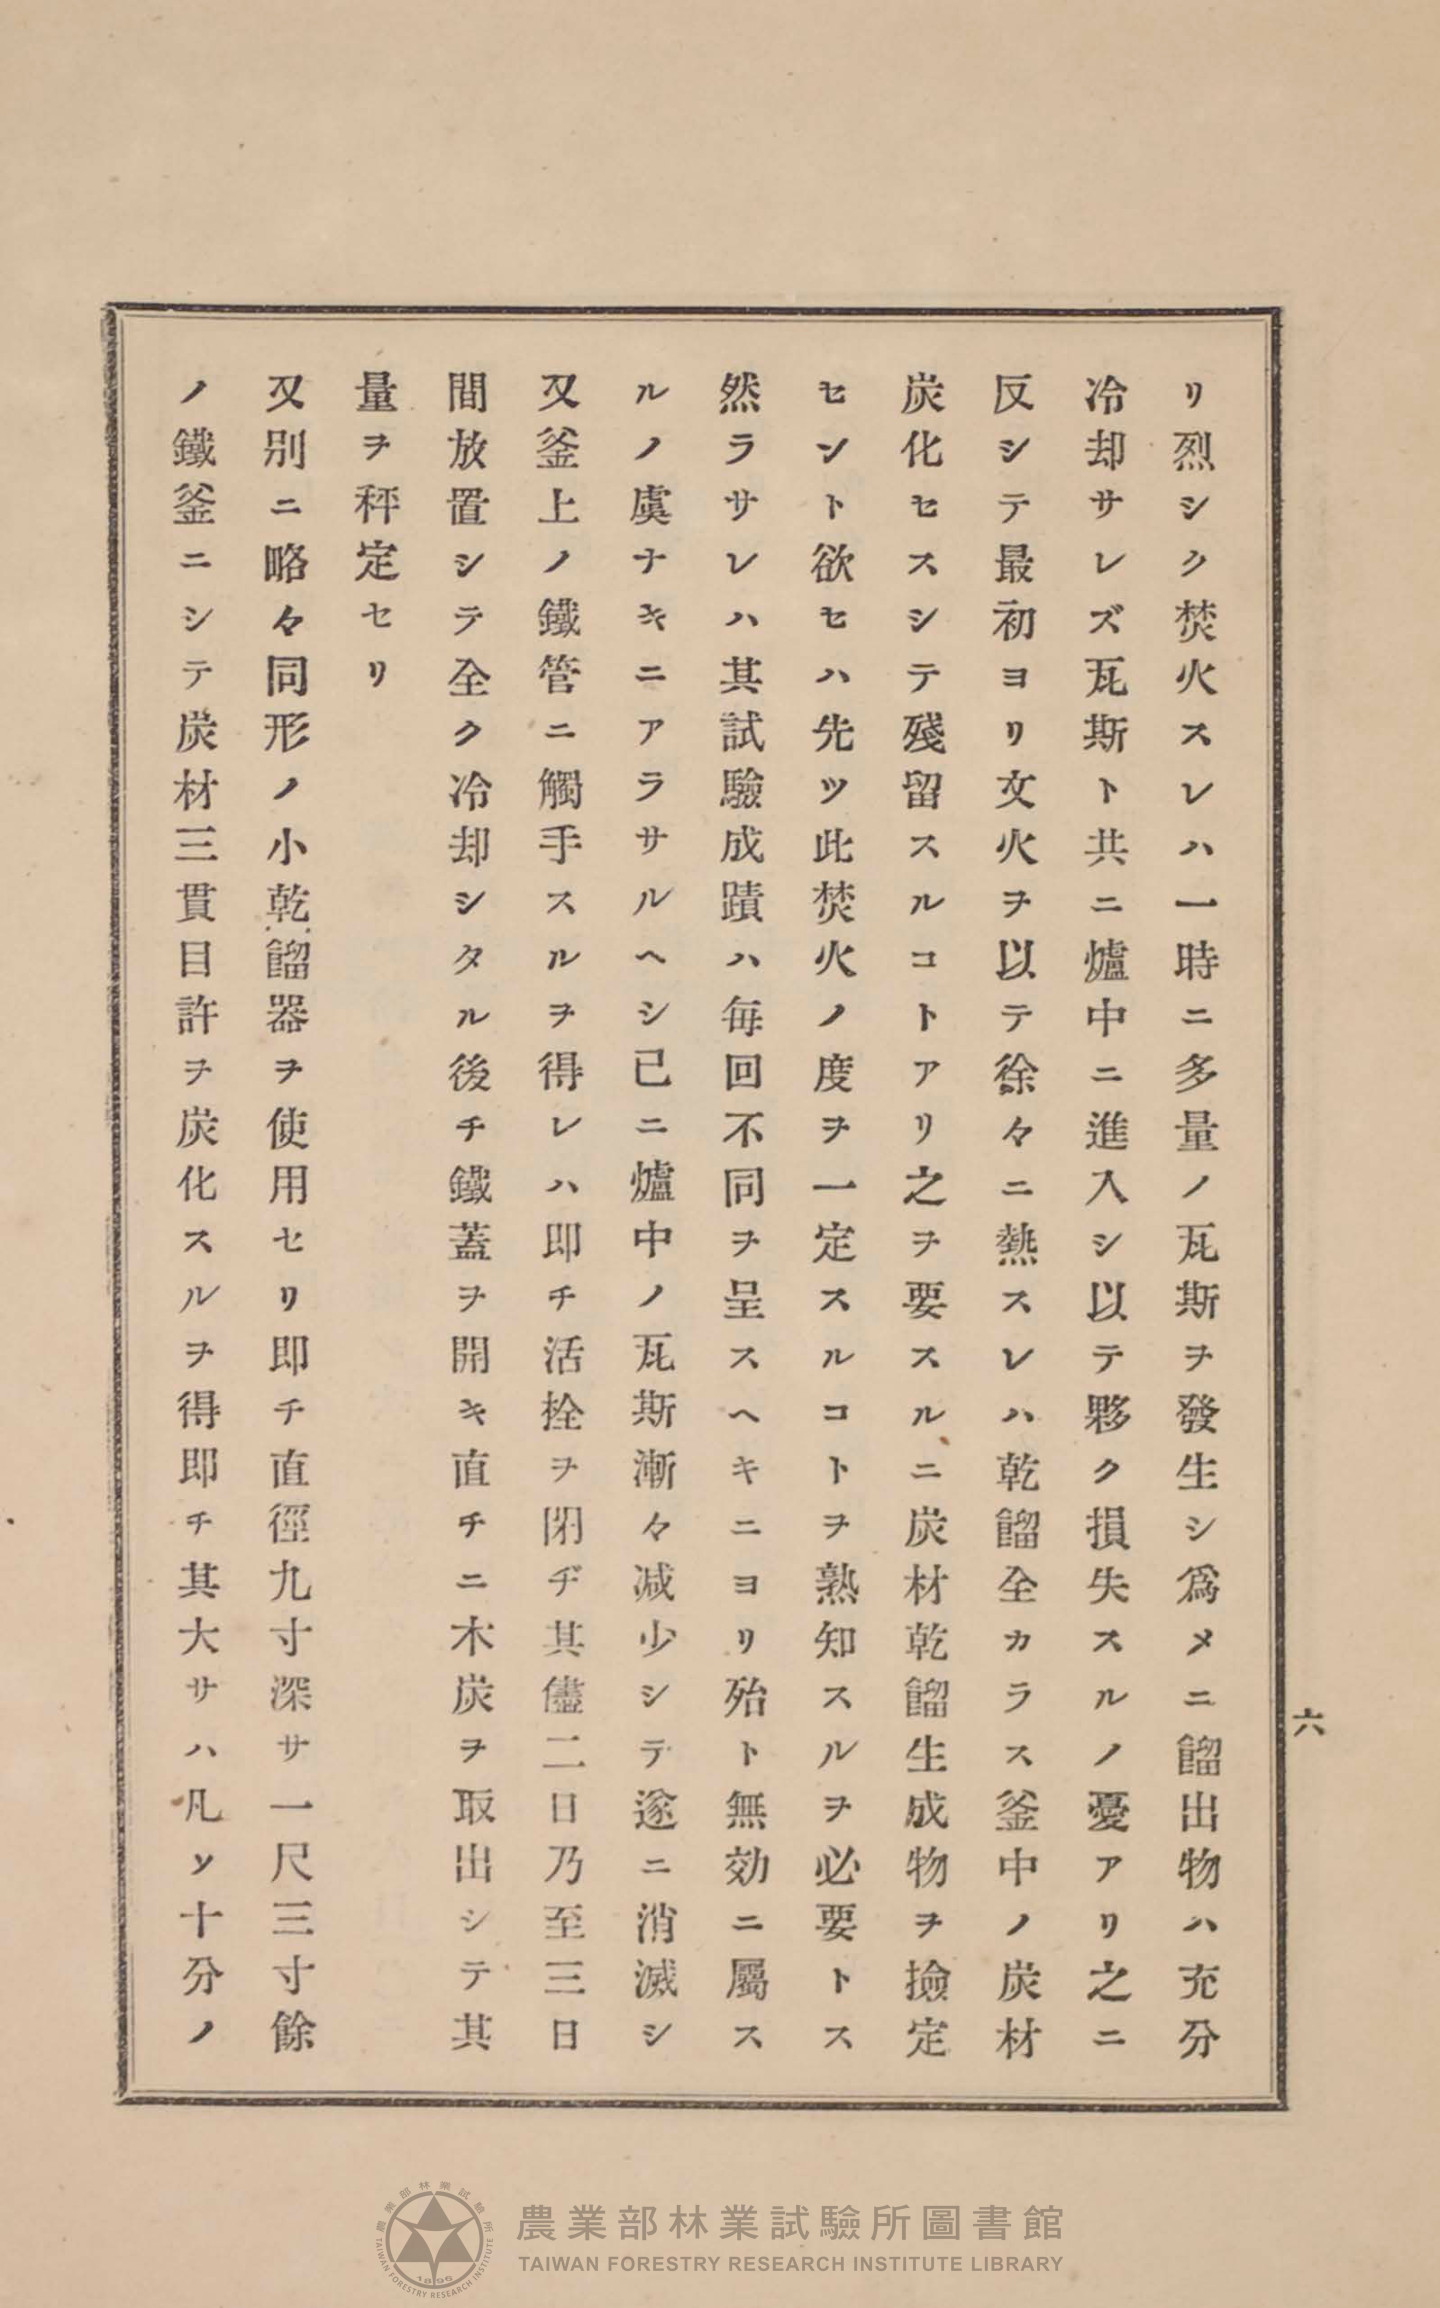 リ烈シク焚火スレハ一時ニ多量ノ瓦斯ヲ發生シ爲メニ餾出物ハ充分
冷却サレズ瓦斯ト共ニ爐中ニ進入シ以テ夥ク損失スルノ憂アリ之ニ
反シテ最初ヨリ文火ヲ以テ徐々ニ熱スレハ乾餾全カラス釜中ノ炭材
炭化セスシテ殘留スルコトアリ之ヲ要スルニ炭材乾餾生成物ヲ撿定
セント欲セハ先ツ此焚火ノ度ヲ一定スルコトヲ熟知スルヲ必要トス
然ラサレハ其試驗成蹟ハ毎回不同ヲ呈スヘキニヨリ殆ト無効ニ屬ス
ルノ虞ナキニアラサルヘシ已ニ爐中ノ瓦斯漸々減少シテ遂ニ消滅シ
又釜上ノ鐵管ニ觸手スルヲ得レハ即チ活栓ヲ閉ヂ其儘二日乃至三日
間放置シテ全ク冷却シタル後チ鐵蓋ヲ開キ直チニ木炭ヲ取出シテ其
量ヲ秤定セリ
又別ニ略々同形ノ小乾餾器ヲ使用セリ即チ直徑九寸深サ一尺三寸餘
ノ鐵釜ニシテ炭材三貫目許ヲ炭化スルヲ得即チ其大サハ凡ソ十分ノ
六
農業部林業試驗所圖書館
TAIWAN FORESTRY RESEARCH INSTITUTE LIBRARY
農業部林業試驗所
TAIWAN FORESTRY RESEARCH INSTITUTE
1896